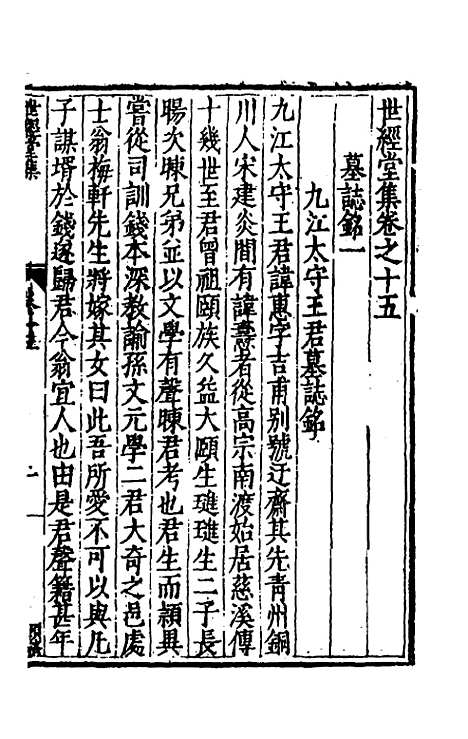 世經堂集卷之十五
墓誌銘一
九江太守王君墓誌銘
九江太守王君諱惠字吉甫別號迂齋其先青州銅
川人宋建炎間有諱燾者從高宗南渡始居慈溪傳
十幾世至君曾祖頤族久益大頤生璡璡生二子長
暘次暕兄弟並以文學有聲暕君考也君生而穎異
嘗從司訓錢本深教諭孫文元學二君大奇之邑處
士翁梅軒先生將嫁其女曰此吾所愛不可以與凡
子謀壻於錢遂歸君今翁宜人也由是君聲籍甚年
世經堂集
卷十五
一